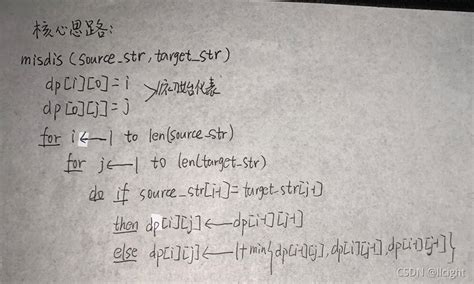 核心思路:
misdis (source_str, target_str)
dp[i][0]=i
初始化表
dp[0][j]=j
for i ← 1 to len(source_str)
for j ← 1 to len(target_str)
do if source_str[i-1]=target_str[j-1]
then dp[i][j] ← dp[i-1][j-1]
else dp[i][j] ← 1+min{dp[i-1][j], dp[i][j-1], dp[i-1][j-1]}
CSDN @licight